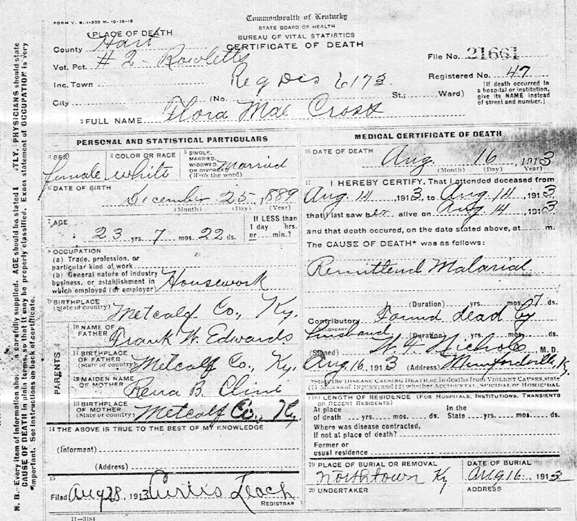 FORM V. S. 1-200 M. 10-19-10
Commonwealth of Kentucky
STATE BOARD OF HEALTH
BUREAU OF VITAL STATISTICS
CERTIFICATE OF DEATH
1 PLACE OF DEATH
County Hart
Vot. Pct. #2 - Rowletts
File No. 21661
Inc. Town Reg Dis 6173
Registered No. 47
City (No. St.; Ward)
(If death occurred in a hospital or institution, give its NAME instead of street and number.)
2 FULL NAME Flora Mae Cross
PERSONAL AND STATISTICAL PARTICULARS
3 SEX female
4 COLOR OR RACE white
5 SINGLE, MARRIED, WIDOWED OR DIVORCED (Write the word) Married
6 DATE OF BIRTH
December 25, 1889
(Month) (Day) (Year)
7 AGE
23 yrs. 7 mos. 22 ds.
If LESS than 1 day hrs. or min.?
8 OCCUPATION
(a) Trade, profession, or particular kind of work
(b) General nature of industry business, or establishment in which employed (or employer) Housework
9 BIRTHPLACE (State or country) Metcalf Co., Ky.
10 NAME OF FATHER Frank W. Edwards
PARENTS
11 BIRTHPLACE OF FATHER (State or country) Metcalf Co., Ky.
12 MAIDEN NAME OF MOTHER Rena B. Cline
13 BIRTHPLACE OF MOTHER (State or country) Metcalf Co., Ky
14 THE ABOVE IS TRUE TO THE BEST OF MY KNOWLEDGE
(Informant)
(Address)
15 Filed Aug 28 1913 Curtis Leach
REGISTRAR
11-3184
MEDICAL CERTIFICATE OF DEATH
16 DATE OF DEATH
Aug. 16 1913
(Month) (Day) (Year)
17 I HEREBY CERTIFY, That I attended deceased from
Aug 14 1913, to Aug 14 1913
that I last saw her alive on Aug 14 1913
and that death occured, on the date stated above, at m.
The CAUSE OF DEATH* was as follows:
Remittend Malarial
(Duration) yrs. mos. 7 ds.
Contributory Found dead by
husband
(Duration) yrs. mos. ds.
(Signed) Nichols M. D.
Aug 16, 1913 (Address) Munfordville Ky
*State the DISEASE CAUSING DEATH, or, in deaths from VIOLENT CAUSES, state (1) MEANS OF INJURY; and (2) whether ACCIDENTAL, SUICIDAL or HOMICIDAL
18 LENGTH OF RESIDENCE (FOR HOSPITALS, INSTITUTIONS, TRANSIENTS OR RECENT RESIDENTS)
At place of death yrs. mos. ds. In the State yrs. mos. ds.
Where was disease contracted, if not at place of death?
Former or usual residence
19 PLACE OF BURIAL OR REMOVAL
Northtown Ky
DATE OF BURIAL
Aug 16, 1913
20 UNDERTAKER
ADDRESS
N. B.-Every item of information should be carefully supplied. AGE should be stated EXACTLY. PHYSICIANS should state
CAUSE OF DEATH in plain terms, so that it may be properly classified. Exact statement of OCCUPATION is very
important. See instructions on back of certificate.